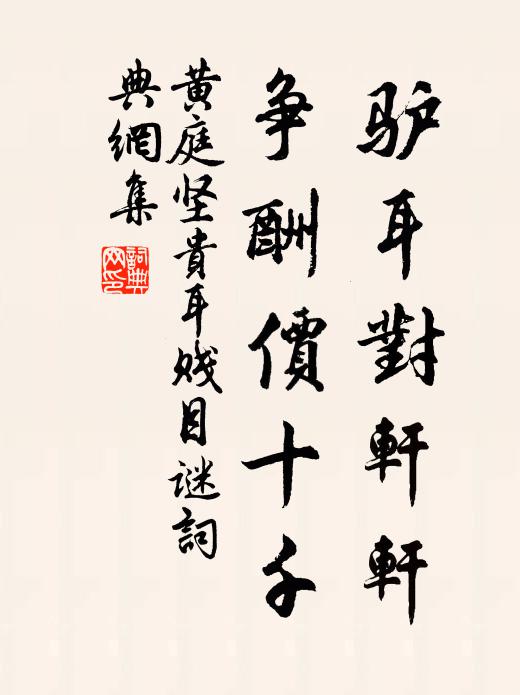 驴耳對軒軒
争酬價十千
黄庭坚貴耳贱目谜詞
典網集
詞典
网印